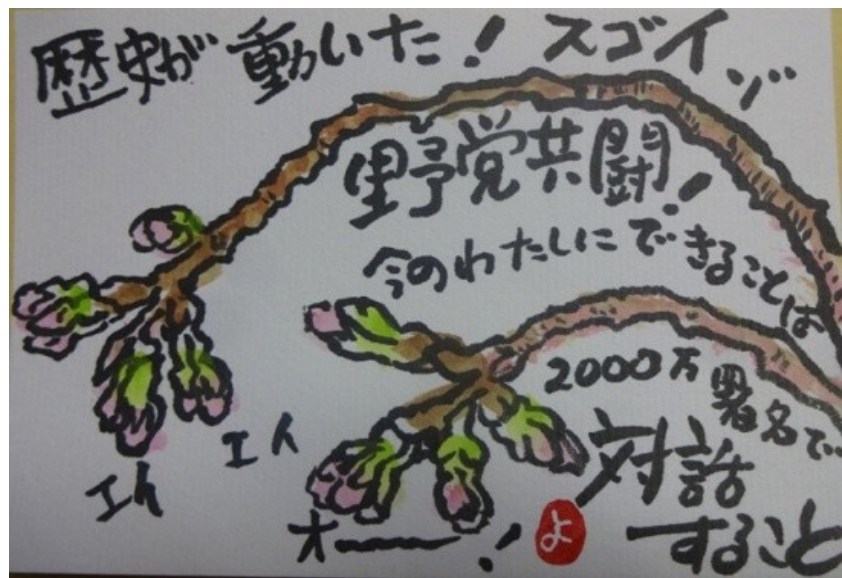 歴史が動いた!スゴイゾ
野党共闘!
今のわたしにできることは
2000万署名で
対話
すること
エイ
エイ
オー!
よ